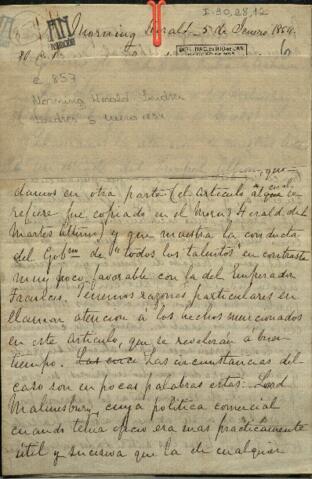 I-90,28,12
Morning Herald - 5 de Enero 1854
AN
C. 857
Morning Herald. Londres
Londres 5 enero 1854
damos en otra parte (el articulo al que se
refiere fué copiado en el Morng Herald del
Martes último) y que muestra la conducta
del Gobno de "todos los talentos" en contraste
muy poco favorable con la del Emperador
Faustus. Tenemos razones particulares en
llamar atencion á los hechos mencionados
en este artículo, que se revelarán a buen
tiempo. Las circunstancias del
caso son en pocas palabras estas: Lord
Malmesbury, cuya política comercial
cuando tenia oficio era mas practicamente
útil y sucesiva que la de cualquier